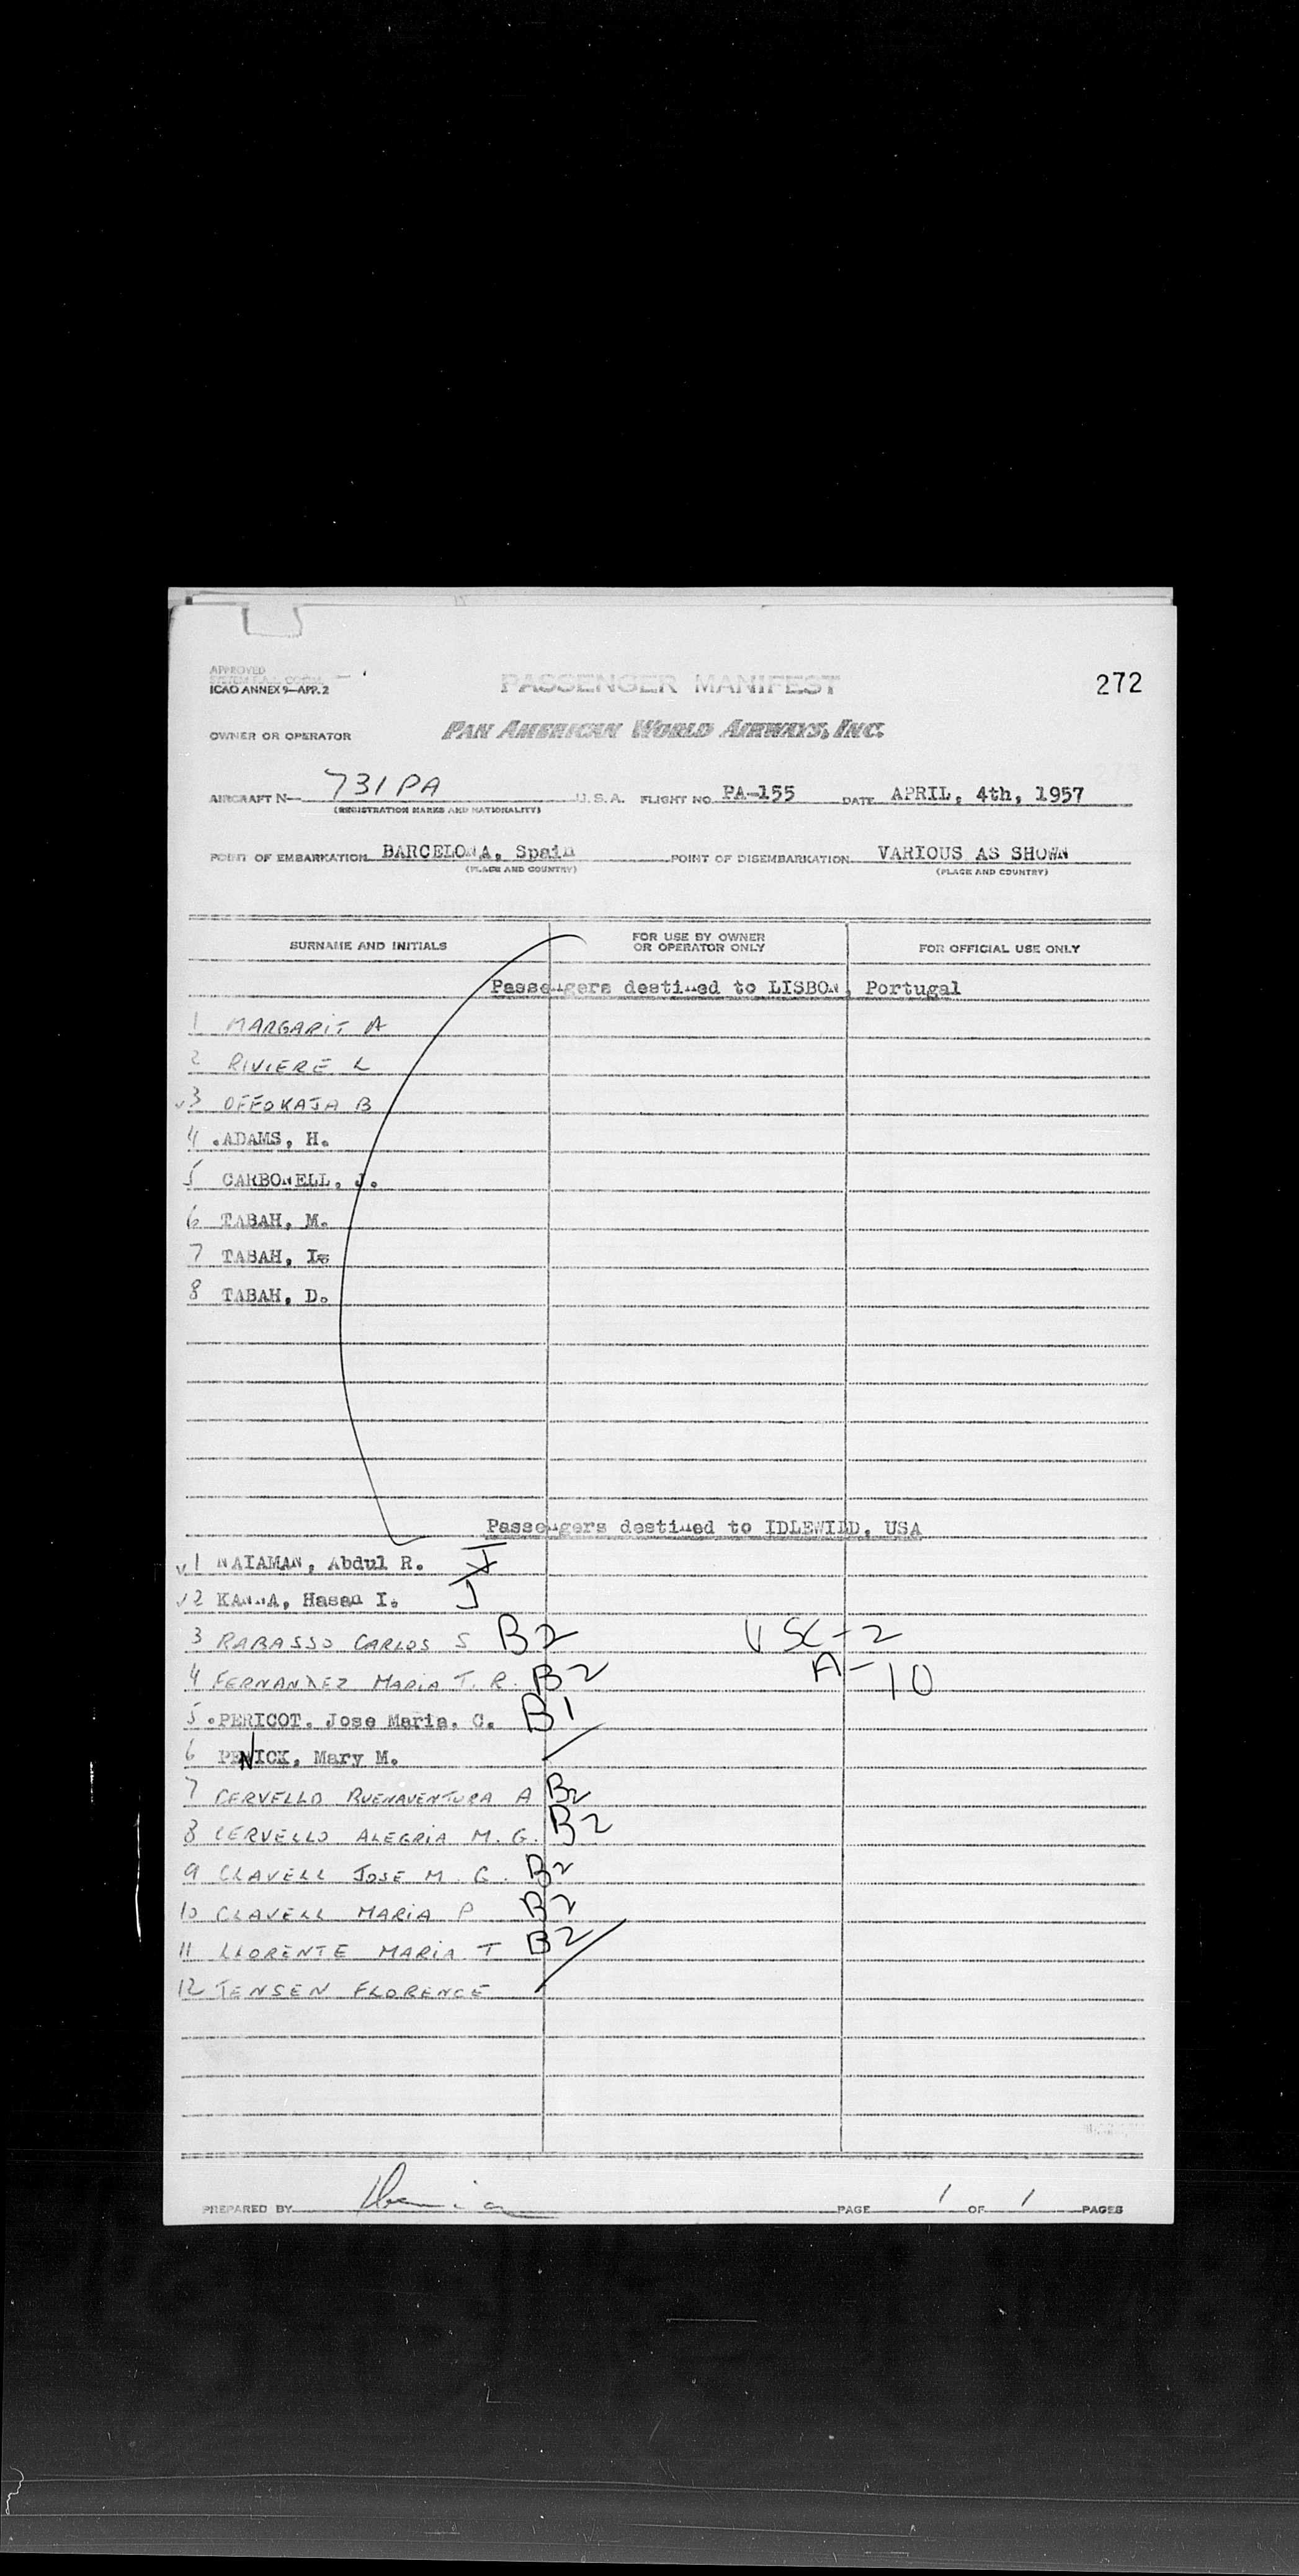 APPROVED
ICAO ANNEX 9—APP. 2
PASSENGER MANIFEST
272
OWNER OR OPERATOR
PAN AMERICAN WORLD AIRWAYS, INC.
AIRCRAFT N— 731PA U.S.A. FLIGHT NO. PA-155 DATE APRIL, 4th, 1957
(REGISTRATION MARKS AND NATIONALITY)
POINT OF EMBARKATION BARCELONA, Spain POINT OF DISEMBARKATION VARIOUS AS SHOWN
(PLACE AND COUNTRY) (PLACE AND COUNTRY)
SURNAME AND INITIALS FOR USE BY OWNER OR OPERATOR ONLY FOR OFFICIAL USE ONLY
Passengers destined to LISBON, Portugal
1 MARGARIT A
2 RIVIERE L
3 OFFOKAJA B
4 ADAMS, H.
5 CARBONELL, J.
6 TABAH, M.
7 TABAH, I.
8 TABAH, D.
Passengers destined to IDLEWILD, USA
1 NAIAMAN, Abdul R.
2 KANNA, Hasan I. J
3 RABASSO CARLOS S B2 USC-2
4 FERNANDEZ MARIA T. R. B2 A-10
5 PERICOT, Jose Maria. C. B1
6 PENICK, Mary M.
7 CERVELLO BUENAVENTURA A B2
8 CERVELLO ALEGRIA M. G. B2
9 CLAVELL JOSE M. G. B2
10 CLAVELL MARIA P B2
11 LLORENTE MARIA T B2
12 JENSEN FLORENCE
PREPARED BY PAGE 1 OF 1 PAGES